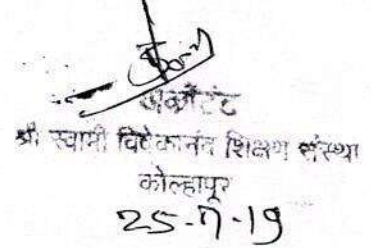 अकौंटंट
श्री स्वामी विवेकानंद शिक्षण संस्था
कोल्हापूर
25-7-19